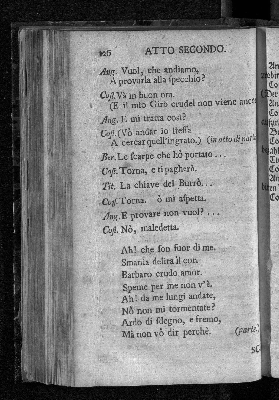 126 ATTO SECONDO.
Ang. Vuol, che andiamo,
A provarla allo specchio?
Cost. Và in buon ora.
(E il mio Giro crudel non viene ancor
Ang. E mi tratta così?
Cost. (Vò andar io stessa
A cercar quell'ingrato.) (in atto di partire
Ber. Le scarpe che hò portato...
Cost. Torna, e ti pagherò.
Tit. La chiave del Burrò...
Cost. Torna. ò mi aspetta.
Ang. E provare non vuol?...
Cost. Nò, maledetta.
Ah! che son fuor di me.
Smania delira il cor.
Barbaro crudo amor.
Speme per me non v'è.
Ah! da me lungi andate,
Nò non mi tormentate?
Ardo di sdegno, e fremo,
Mà non vò dir perchè. (parte.)
SC